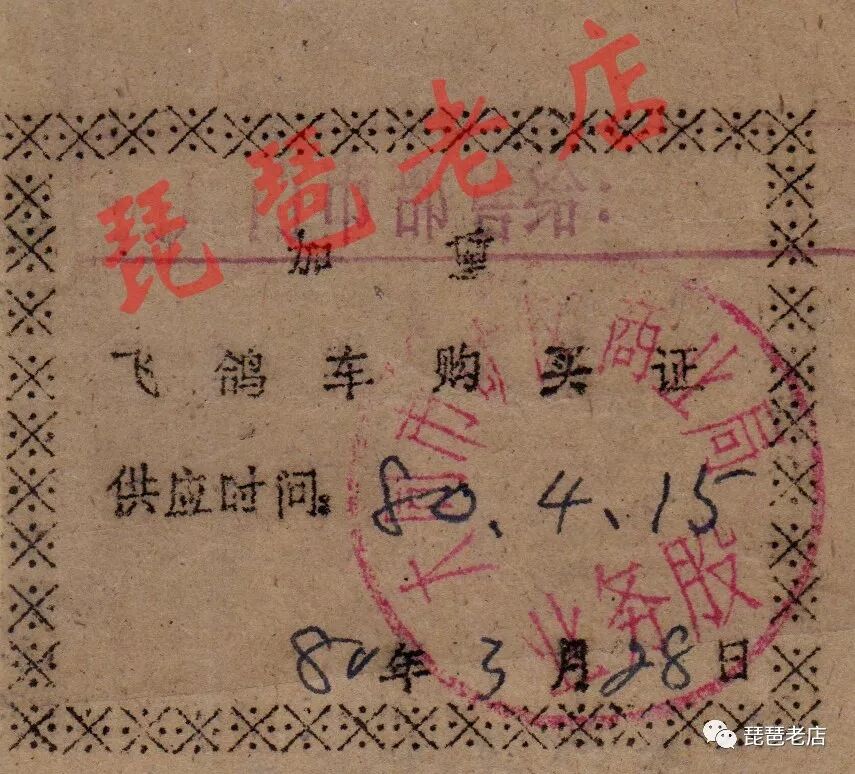 琵琶老店
加重
飞鸽车购买证
供应时间: 80.4.15
80年3月28日
业务股
琵琶老店